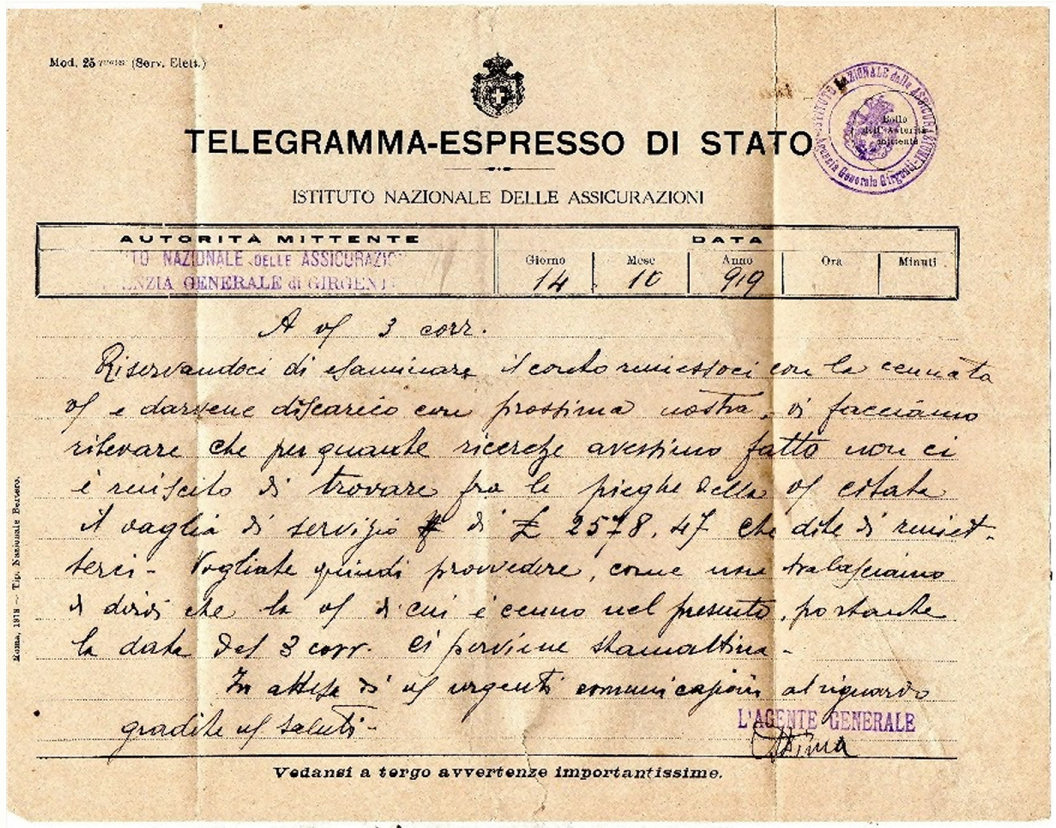 Mod. 25 (Serv. Elett.)
TELEGRAMMA-ESPRESSO DI STATO
ISTITUTO NAZIONALE DELLE ASSICURAZIONI
ISTITUTO NAZIONALE delle ASSICURAZIONI
Agenzia Generale Girgenti
Bollo
dell'Autorità
mittente
AUTORITÀ MITTENTE
DATA
TO NAZIONALE DELLE ASSICURAZIO
ENZIA GENERALE di GIRGENTI
Giorno Mese Anno Ora Minuti
14 10 919
A vs 3 corr.
Riservandoci di esaminare il conto rimessoci con la cennata
vs e darvene discarico con prossima nostra, vi facciamo
rilevare che per quante ricerche avessimo fatto non ci
è riuscito di trovare fra le pieghe della vs citata
il vaglia di servizio di £ 2578,47 che dite di rimet-
terci- Vogliate quindi provvedere, come non tralasciamo
di dirvi che la vs di cui è cenno nel presente, portante
la data del 3 corr. ci perviene stamattina-
In attesa di vs urgenti comunicazioni al riguardo
gradite vs saluti-
L'AGENTE GENERALE
Vedansi a tergo avvertenze importantissime.
Roma, 1918 — Tip. Nazionale Bertero.